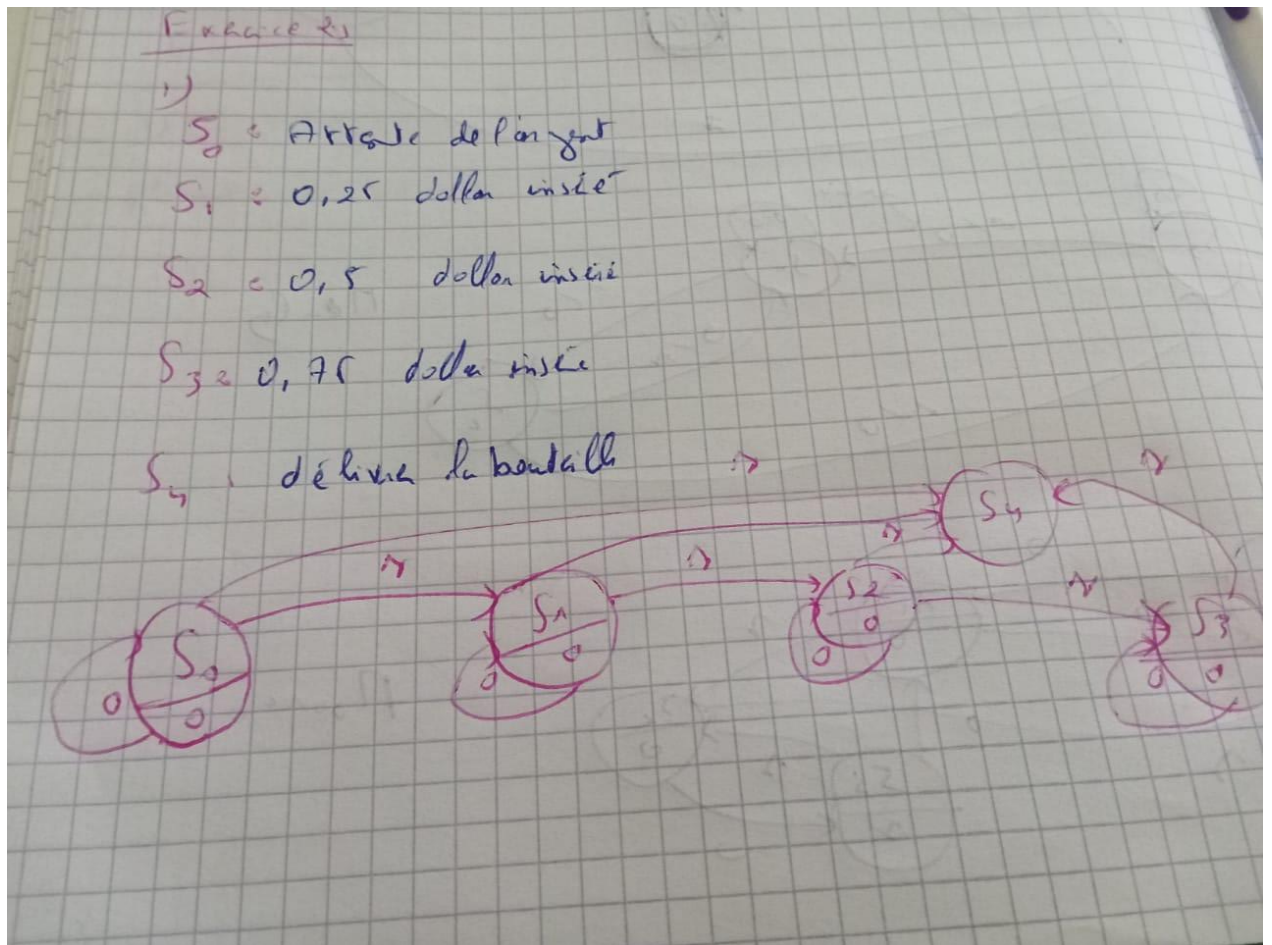 Exercice
1)
S0 = Attente de l'argent
S1 = 0,25 dollar inséré
S2 = 0,5 dollar inséré
S3 = 0,75 dollar inséré
S4 : délivrer la bouteille
1 1
S4
1 1 1 1
S0 S1 S2 S3
0 0 0 0 0 0 0 0